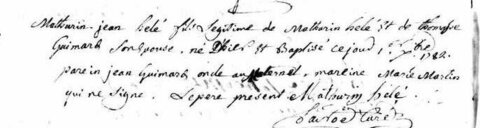 Mathurin jean helé fils legitime de Mathurin helé Et de thomasse
Guimart Son Epouse, né Et Baptisé ce jour 7bre
1782.
parein jean Guimart oncle maternel, mareine Marie Morlin
qui ne Signe. Le pere present Mathurin helé
Curé